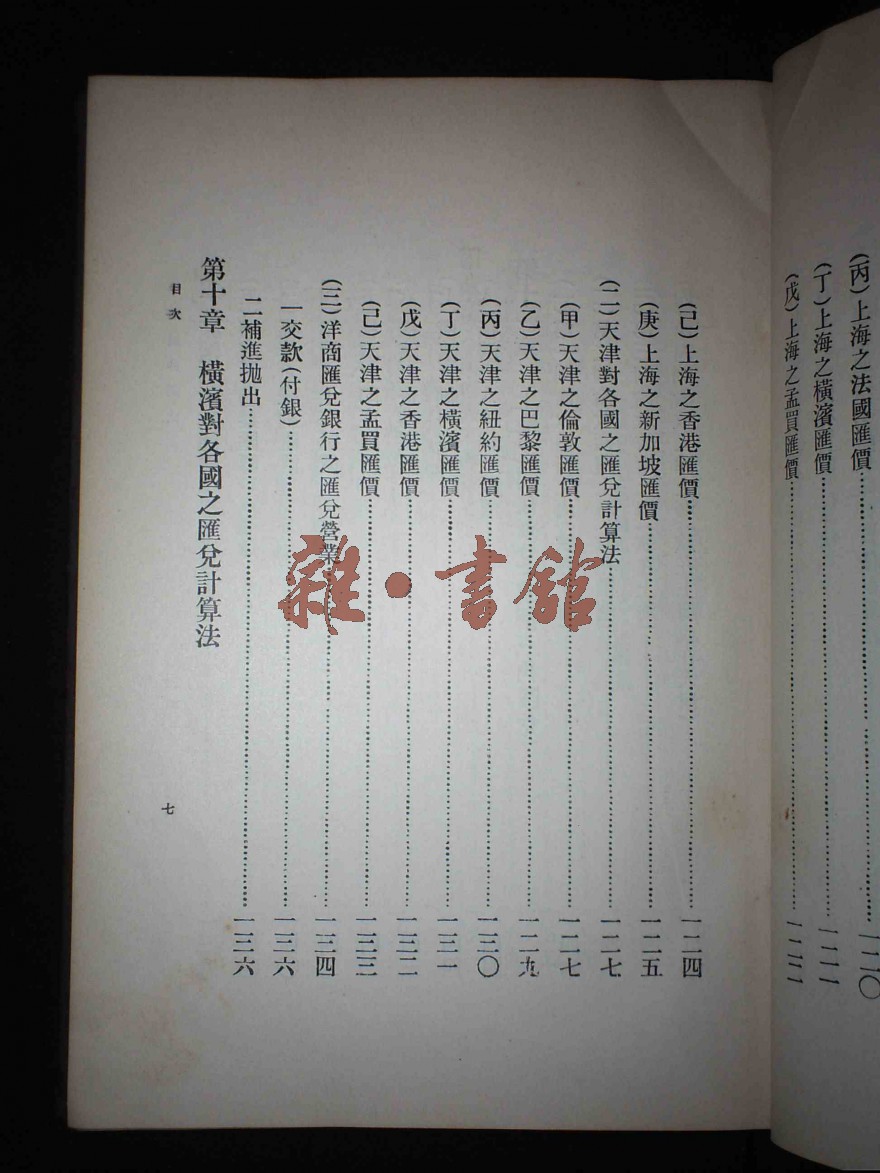 (丙)上海之法國匯價……一二〇
(丁)上海之橫濱匯價……一二一
(戊)上海之孟買匯價……一二二
(己)上海之香港匯價……一二四
(庚)上海之新加坡匯價……一二五
(二)天津對各國之匯兌計算法……一二七
(甲)天津之倫敦匯價……一二七
(乙)天津之巴黎匯價……一二九
(丙)天津之紐約匯價……一三〇
(丁)天津之橫濱匯價……一三一
(戊)天津之香港匯價……一三二
(己)天津之孟買匯價……一三三
(三)洋商匯兌銀行之匯兌營業……一三四
一交款(付銀)……一三六
二補進拋出……一三六
第十章 橫濱對各國之匯兌計算法
目次
七
雜·書館